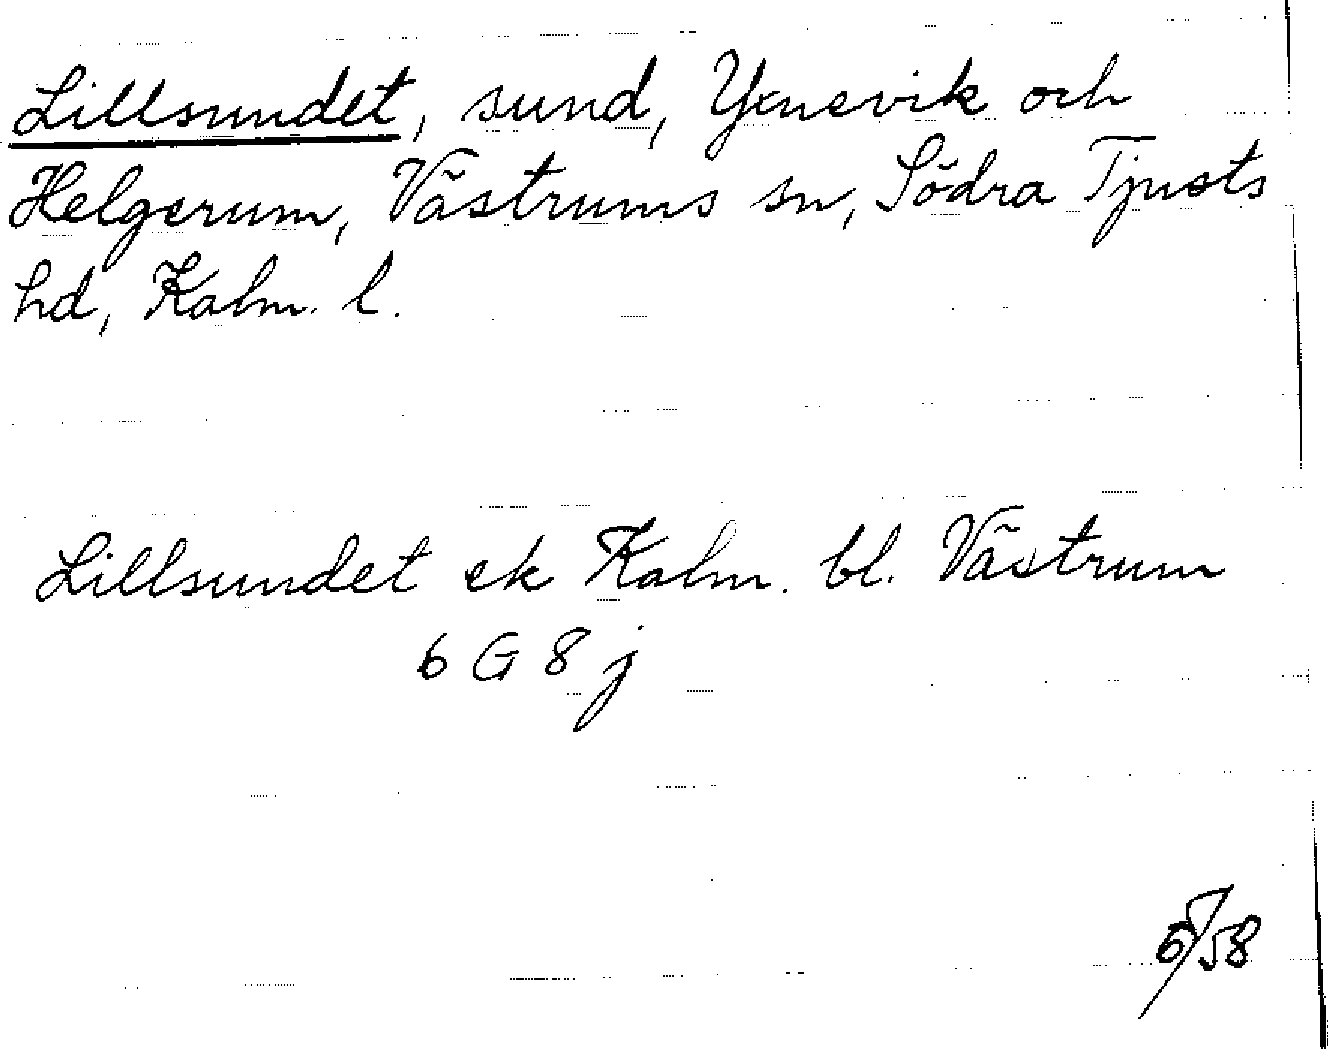 Lillsundet, sund, Yxnevik och
Helgerum, Västrums sn, Södra Tjusts
hd, Kalm. l.
Lillsundet ek Kalm. bl. Västrum
6 G 8 j